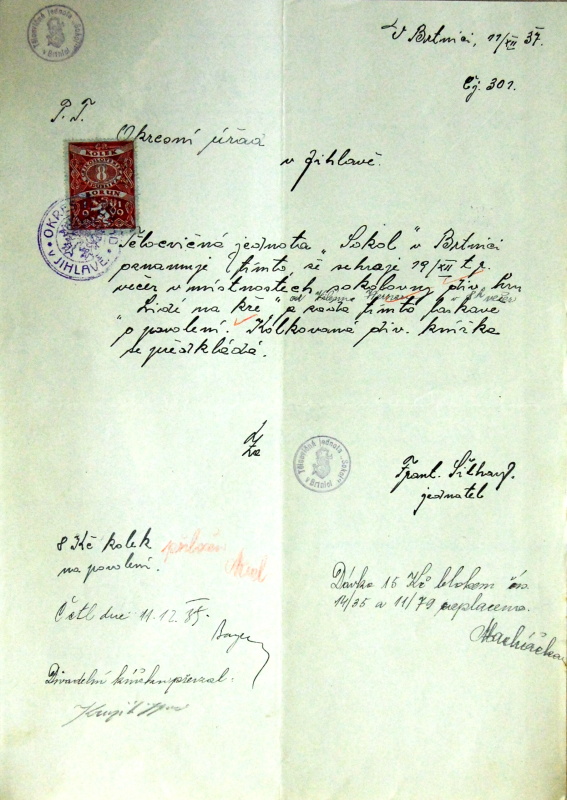 Tělocvičná jednota „Sokol“
v Brtnici
V Brtnici, 11/XII 37.
Čj. 301.
P. T.
Okresní úřad
v Jihlavě.
KOLEK
8
KORUN
OKRESNÍ
V JIHLAVĚ
Tělocvičná jednota „Sokol“ v Brtnici
oznamuje tímto, že sehraje 19/XII t.r.
večer v místnostech sokolovny div. hru
od v 8h večer
„Lidé na kře“ a žádá tímto laskavě
o povolení. Kolkovaná div. knížka
se předkládá.
Za
Tělocvičná jednota „Sokol“
v Brtnici
Frant.
jednatel
8 Kč kolek přiložen
na povolení.
Dávka 16 Kč blokem čís.
14/35 a 11/79 zaplacena.
Četl dne 11.12.
Divadelní knížku převzal: